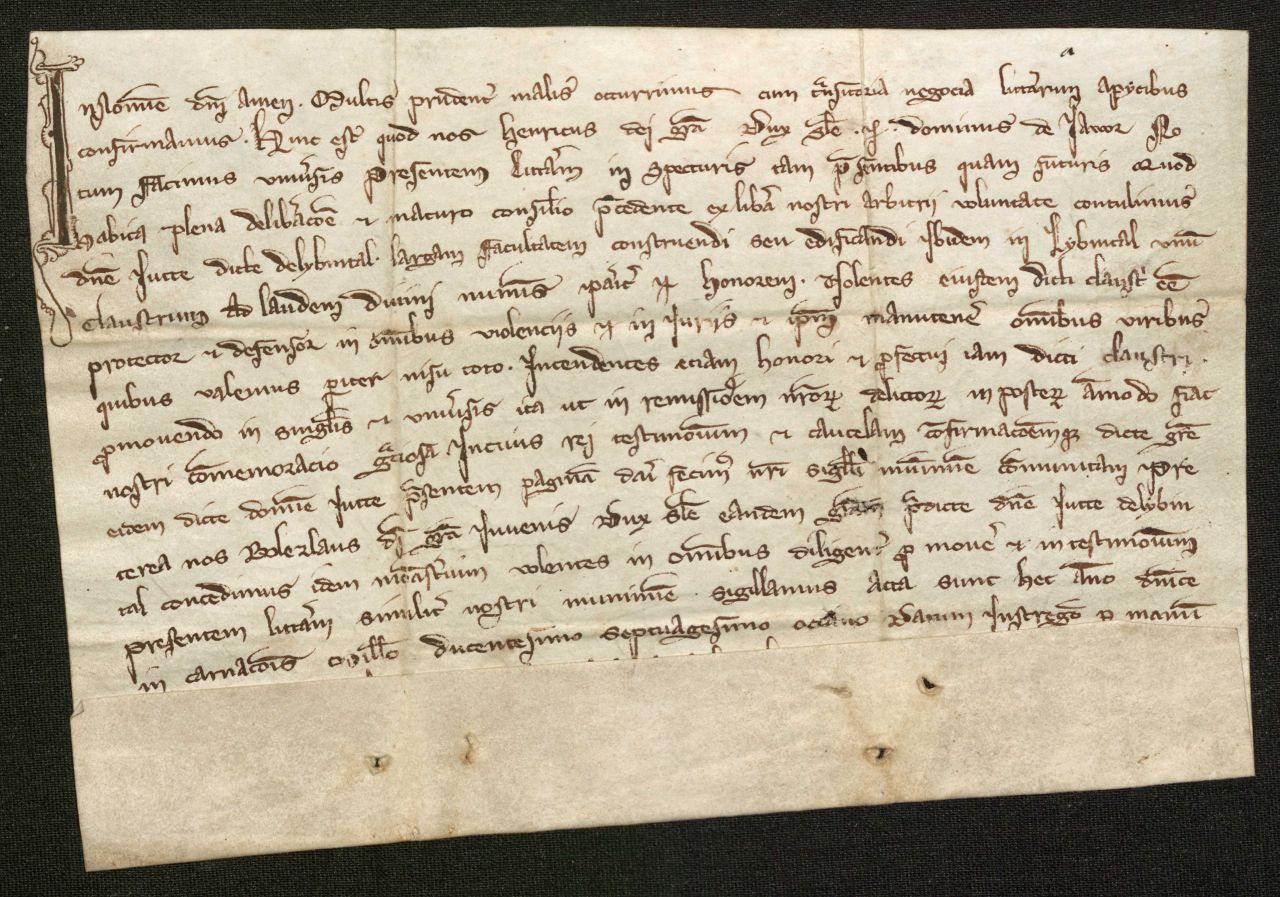 In Nomine dni Amen. Multis prudent̄ malis occurrimus cum t̃nsitoria negocia litt̃arum apycibus
confirmamus. Hinc est quod nos Henricus dei gr̃a Dux Sl̃e . et . dominus de Jawor No
tum facimus uniṽsis presentem litt̃am inspecturis tam p̃sentibus quam futuris Quod
Habita plena delib̃acõe et maturo consilio p̃cedente ex lib̃a nostri arbitrii voluntate contulimus
dñe Jutte dicte de lybintal. largam facultatem construendi seu edificandi ibidem in Lybintal unũ
claustrum ad laudem divini nũis parit̃ et honorem. Volentes eiusdem dicti claust̃ cẽ
protector et defensor in om̃ibus violenciis et iniuriis et ip̃m manuten̄e om̃ibus viribus
quibus valemus pariter nisu toto. Intendentes eciam honori et p̃fectui iam dicti claustri.
p̃movendo in singl̃is et uniṽsis ita ut in remissiõem nr̃orꝝ delictorꝝ in posterꝝ ãmodo fiat
nostri cõmemoracio gr̃ciosa. In cuius rei testimoniũm et cautelam cõfirmacõemq; dicte gr̃e
eidem dicte domĩe Jutte p̃sentem paginã dari fecim9 nr̃i sigilli munimĩe cõmunitam Pre
terea nos Bolezlaus di gr̃a Juvenis Dux Sl̃e eandem gr̃am p̃dicte dñe Jutte de lybin
tal concedimus idem mõast̃ium volentes in om̃ibus diligent̃ p̃mov̄e et in testimoniũm
presentem litt̃am similit̃ nostri munimĩe sigillamus Acta sunt hec Ãno dñice
incarnacõis Mill̃o ducentesimo septuagesimo octavo Datum in Stregoñ p manũ